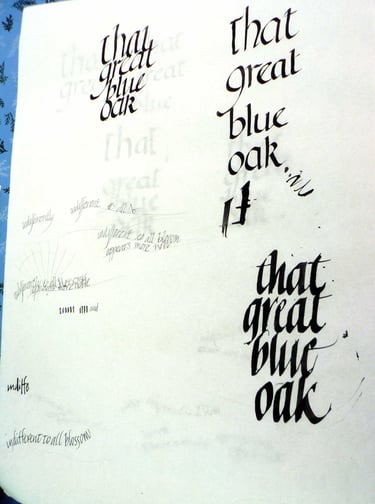 that
great
blue
oak
that
great
blue
oak
indifferently
indifferent to all
indifferent to all blossom
appears more
that
great
blue
oak
indiffe
indifferent to all blossom